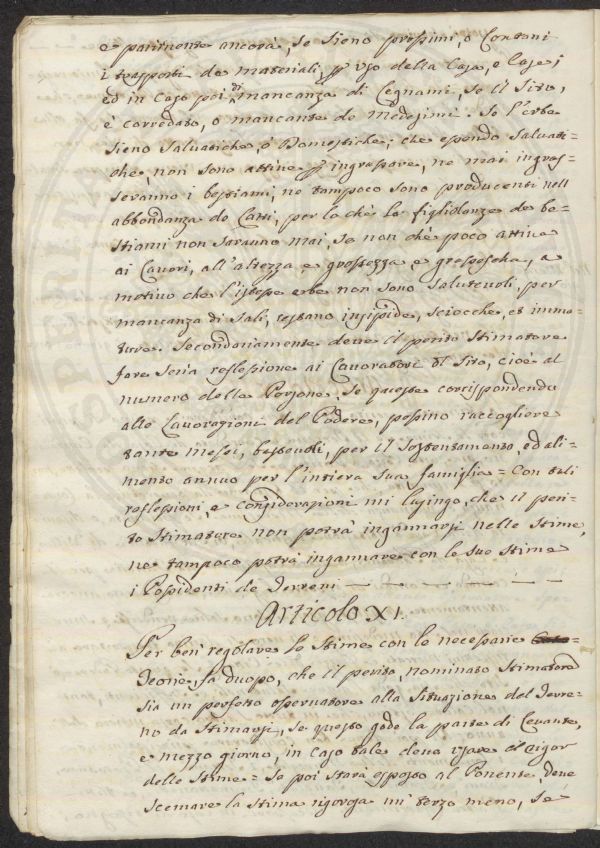 e parimente ancora, se sieno prossimi, o lontani
i trasporti de materiali, per uso della Casa, e Case;
ed in caso poi di mancanza di Legnami, se il Sito,
è corredato, o mancante de medesimi. Se l'erbe
sieno Saluatiche, o Domestiche; che essendo Saluati=
che, non sono attine per ingrassare, ne mai ingras=
seranno i bestiami, ne tampoco sono producenti nell
abbondanza de Latti, per lo chè la figliolanza de be=
stiami non saranno mai, se non chè poco attiue
ai Lauori, all'altezza, e grossezza, e
motiuo che l'istesse erbe non sono saluteuoli, per
mancanza di Sali, restano insipide, sciocche, ed imma=
ture. Secondariamente deue il perito Stimatore
fare seria reflessione ai Lauoratori del Sito, cioè al
numero delle Persone, se queste corrispondendo
alle Lauorazioni del Podere, possino raccogliere
tante Messi, basteuoli, per il Sostentamento, ed ali=
mento annuo per l'intiera sua famiglia = Con tali
reflessioni, e considerazioni mi lusingo, che il peri=
to Stimatore non potrà ingannarsi nelle Stime,
ne tampoco potrà ingannare con le sue stime
i Possidenti de Terreni
Articolo XI.
Per ben' regolare le Stime con le necessarie
fa duopo, che il perito, nominato Stimatore
sia un perfetto osseruatore alla Situazione del Terre=
no da Stimarsi, se questo gode la parte di Leuante,
e mezzo giorno, in caso tale deue usare il rigor
delle Stime = Se poi starà esposto al Ponente, deue
scemare la stima rigorosa un' terzo meno, se